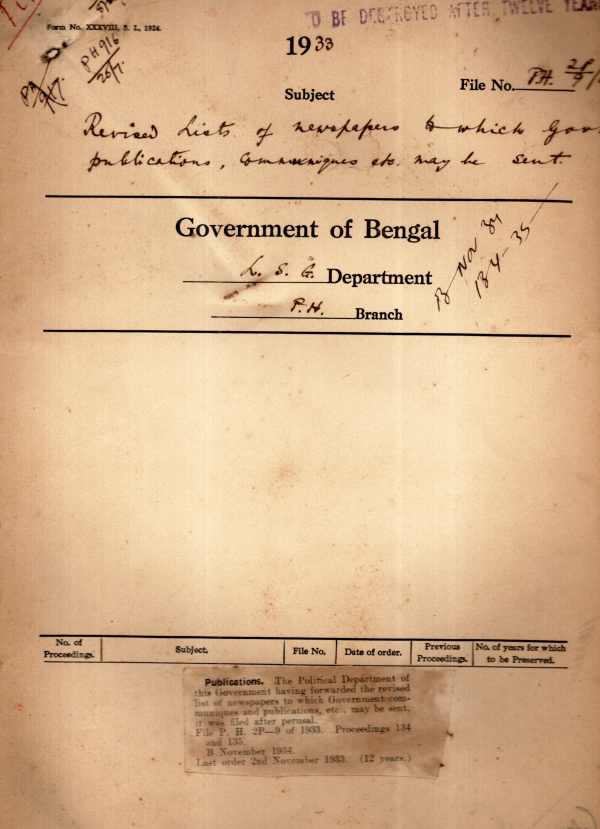 Form No. XXXVIII, S. I., 1924.
TO BE DESTROYED AFTER TWELVE YEARS
PH 916
26/7.
1933
File No. P.H.
Subject
Revised Lists of newspapers to which Gov
publications, Communiques etc. may be sent.
Government of Bengal
L. S. G. Department
P.H. Branch
B Nov 34
134-35
No. of Proceedings.
Subject.
File No.
Date of order.
Previous Proceedings.
No. of years for which to be Preserved.
Publications. The Political Department of
this Government having forwarded the revised
list of newspapers to which Government com-
muniques and publications, etc., may be sent,
it was filed after perusal.
File P. H. 2P—9 of 1933. Proceedings 134
and 135.
B November 1934.
Last order 2nd November 1933. (12 years.)